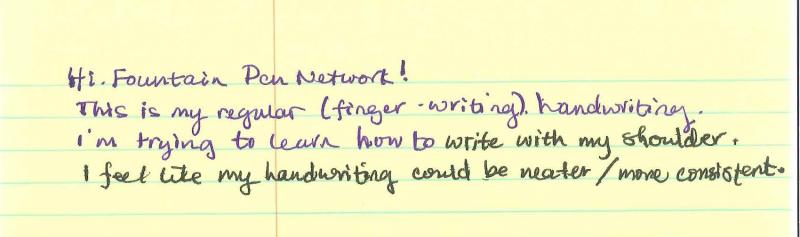 Hi. Fountain Pen Network!
This is my regular (finger-writing). handwriting.
I'm trying to learn how to write with my shoulder.
I feel like my handwriting could be neater / more consistent.